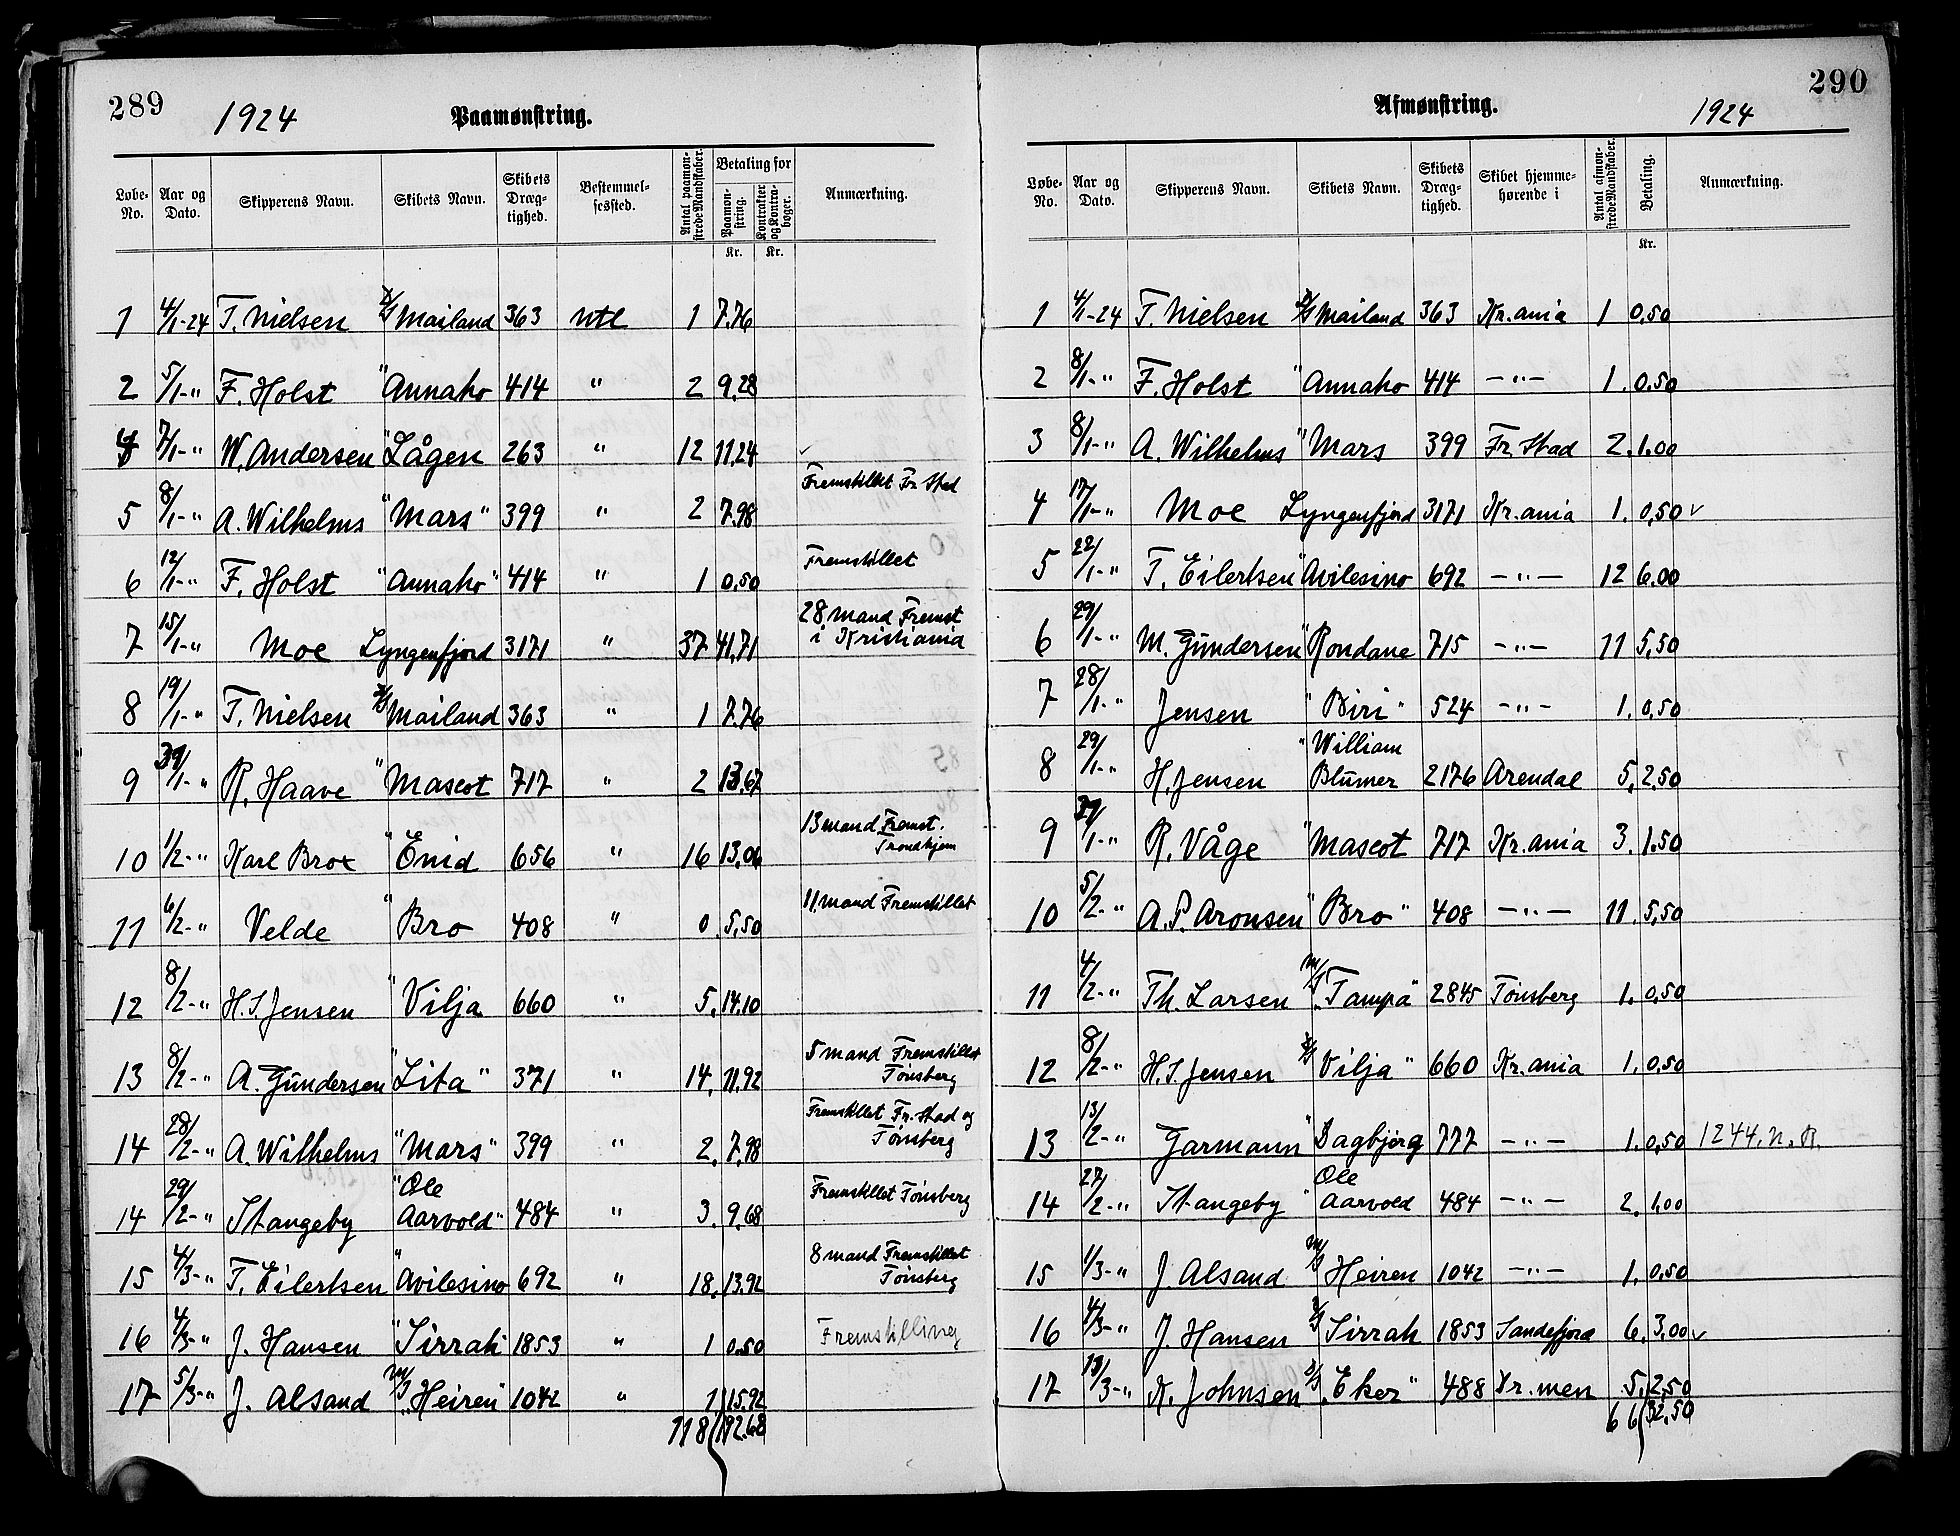 289
1924 Paamønstring.
Løbe-No. Aar og Dato. Skipperens Navn. Skibets Navn. Skibets Dræg-tighed. Bestemmel-sessted. Antal paamøn-strede Mandskaber. Betaling for Paamøn-string. Kontrakter og Kontra-bøger. Anmærkning.
Kr. Kr.
1 4/1-24 T. Nielsen D/S Mailand 363 Utl 1 7.76
2 5/1-" F. Holst " Annaho 414 " 2 9,28
4 7/1-" W. Andersen " Lågen 263 " 12 11,24
5 8/1-" A. Wilhelms " Mars " 399 " 2 7.98 Fremstillet Fr. Stad
6 12/1-" F. Holst " Annaho " 414 " 1 0,50 Fremstillet
7 15/1-" Moe Lyngenfjord 3171 " 37 41,71 28 mand Fremst i Kristiania
8 19/1-" T. Nielsen D/S Mailand 363 " 1 7.76
9 31/1-" R. Haave " Mascot 717 " 2 13,67
10 1/2-" Karl Brox " Enid 656 " 16 13,06 13 mand Fremst. Trondhjem
11 6/2-" Velde " Bro 408 " 0 5,50 11 mand Fremstillet
12 8/2-" H. S. Jensen " Vilja 660 " 5. 14.10
13 8/2-" A. Gundersen " Lita " 371 " 14. 11.92 5 mand Fremstillet Tønsberg
14 28/2-" A. Wilhelms " Mars " 399 " 2. 7.98 Fremstillet Fr. Stad og Tønsberg
14 29/2-" Stangeby " Ole Aarvold " 484 " 3. 9.68 Fremstillet Tønsberg
15 4/3-" T. Eilertsen " Avilesino 692 " 18. 13.92 8 mand Fremstillet Tønsberg
16 4/3-" J. Hansen " Sirrah 1853 " 1 0.50 Fremstilling
17 5/3-" J. Alsand M/S "Heiren" 1042 " 1 15.92
118 192.68
290
Afmønstring. 1924
Løbe-No. Aar og Dato. Skipperens Navn. Skibets Navn. Skibets Dræg-tighed. Skibet hjemme-hørende i Antal afmøn-strede Mandskaber. Betaling. Anmærkning.
Kr.
1 4/1-24 T. Nielsen D/S Mailand 363 Kr.ania 1 0,50
2 8/1-" F. Holst " Annaho 414 -"- 1. 0.50
3 8/1-" A. Wilhelms " Mars 399 Fr. Stad 2. 1.00
4 17/1-" Moe Lyngenfjord 3171 Kr.ania 1. 0,50
5 22/1-" T. Eilertsen " Avilesino 692 -"- 12 6.00
6 29/1-" M. Gundersen " Rondane 715 -"- 11 5,50
7 28/1-" Jensen " Biri " 524 -"- 1. 0,50
8 29/1-" H. Jensen " William Blumer 2176 Arendal 5, 2.50
9 31/1-" R. Våge " Mascot 717 Kr.ania 3. 1.50
10 5/2-" A. P. Aronsen " Bro " 408 -"- 11. 5,50
11 4/2-" Th. Larsen M/S "Tampa" 2845 Tønsberg 1. 0,50
12 8/2-" H. S. Jensen D/S Vilja " 660 Kr.ania 1. 0,50
13 13/2-" Garmann " Dagbjørg 777 -"- 1. 0,50 1244. N. R.
14 27/2-" Stangeby " Ole Aarvold 484 -"- 2. 1,00
15 1/3-" J. Alsand M/S Heiren 1042 -"- 1. 0,50
16 4/3-" J. Hansen D/S Sirrah 1853 Sandefjord 6. 3,00
17 13/3-" K. Johnsen D/S "Eker" 488 Dr.men 5. 2,50
66 32,50